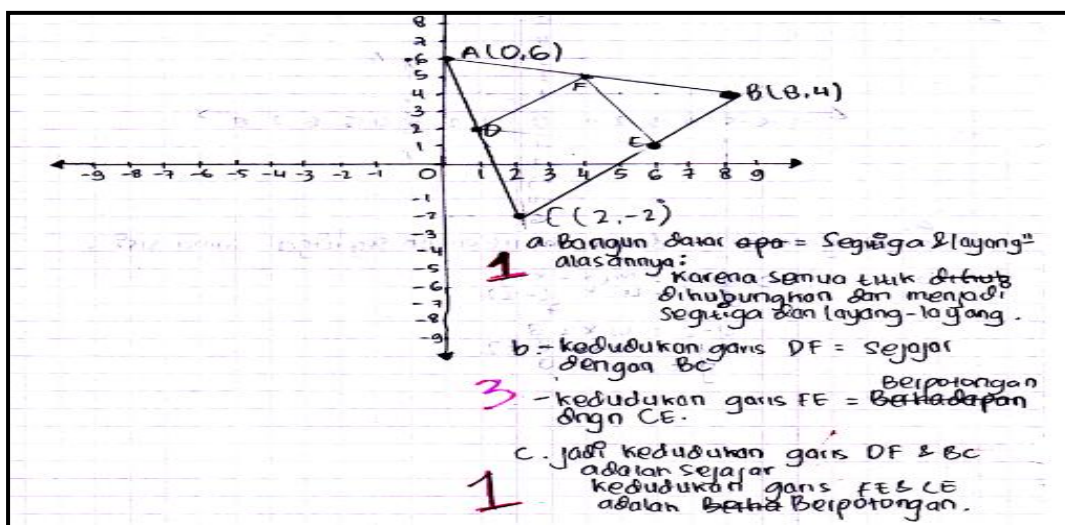 8
7
6
A(0,6)
F
4
B(8,4)
3
2
D
E
1
-9 -8 -7 -6 -5 -4 -3 -2 -1 0 1 2 3 4 5 6 7 8 9
-1
-2
C (2,-2)
-3
-4
-5
-6
-7
-8
-9
a. Bangun datar apa = Segitiga & layang"
1 alasannya:
karena semua titik dihub
dihubungkan dan menjadi
segitiga dan layang-layang.
b. - kedudukan garis DF = Sejajar
dengan BC
Berpotongan
3 - kedudukan garis FE = Berhadapan
dngn CE.
c. jadi kedudukan garis DF & BC
adalah sejajar
1 kedudukan garis FE & CE
adalah Berha Berpotongan.